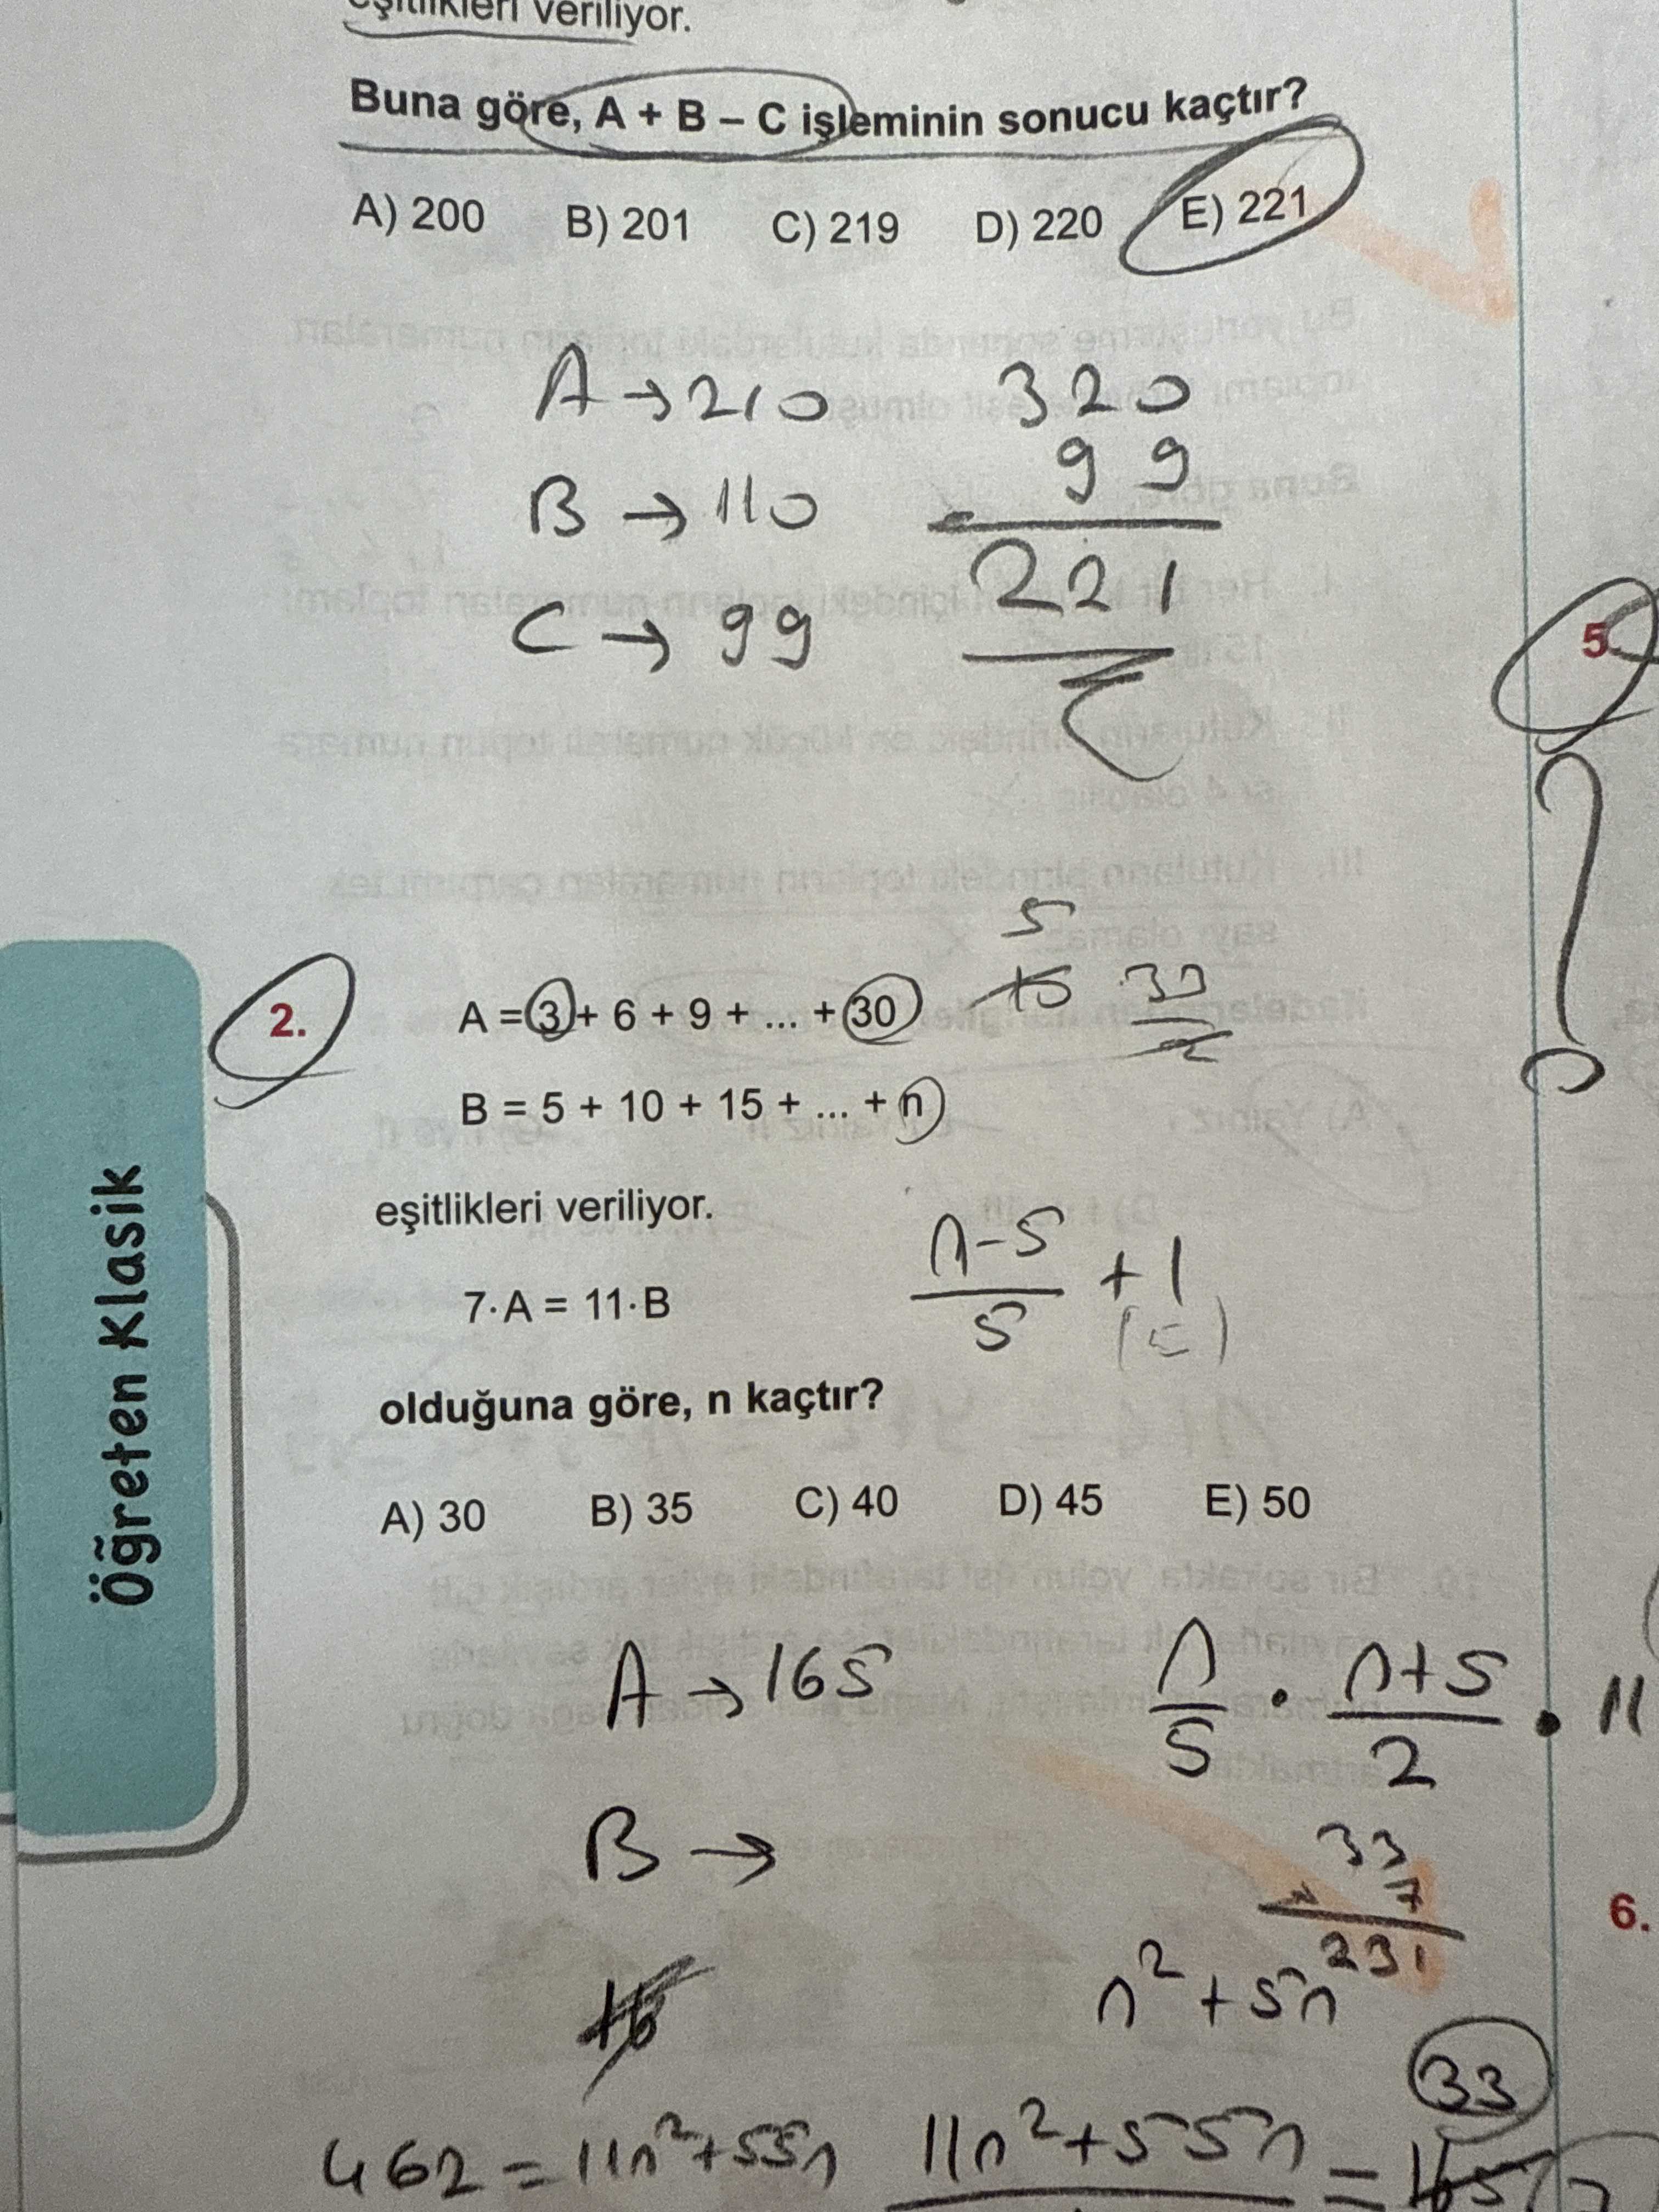 eşitlikleri veriliyor.
Buna göre, A + B – C işleminin sonucu kaçtır?
A) 200 B) 201 C) 219 D) 220 E) 221
A → 210
B → 110
C → 99
320
99
-
221
5.
2.
A = 3 + 6 + 9 + ... + 30
5
15 33
2
B = 5 + 10 + 15 + ... + n
eşitlikleri veriliyor.
n-5
5
+ 1
(5)
7·A = 11·B
olduğuna göre, n kaçtır?
A) 30 B) 35 C) 40 D) 45 E) 50
Öğreten Klasik
A → 165
n/5 · n+5/2 · 11
B →
33
x 7
231
6.
n² + 5n
33
462 = 11n² + 55n
11n² + 55n = 165